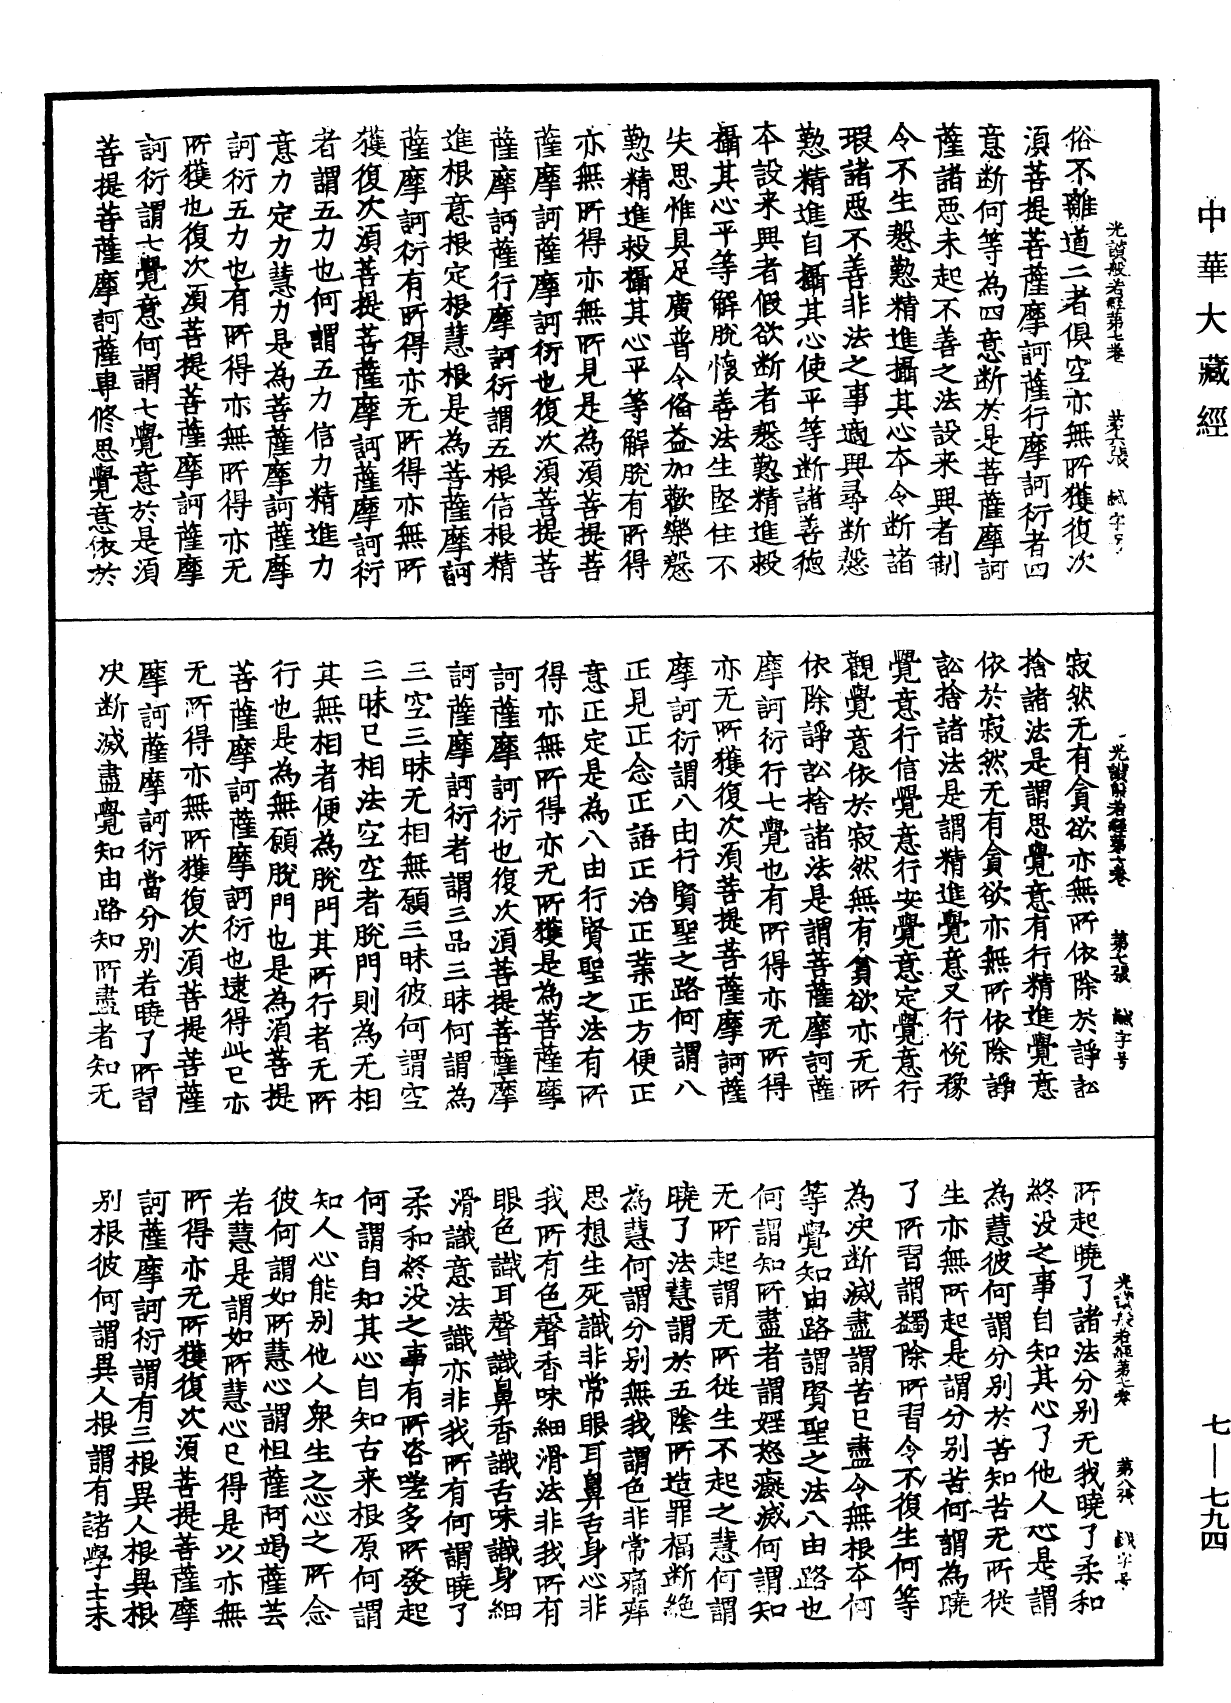 中華大藏經
光讃般若經第七卷 第六張 鹹字号
俗不離道二者俱空亦無所獲復次
湏菩提菩薩摩訶薩行摩訶衍者四
意断何等為四意断於是菩薩摩訶
薩諸惡未起不善之法設来興者制
令不生慇懃精進攝其心夲令断諸
瑕諸惡不善非法之事適興尋断慇
懃精進自攝其心使平等断諸善徳
夲設来興者假欲断者慇懃精進投
攝其心平等解脫懷善法生堅住不
失思惟具足廣普令俻益加歡樂慇
懃精進投攝其心平等解脫有所得
亦無所得亦無所見是為湏菩提菩
薩摩訶薩摩訶衍也復次湏菩提菩
薩摩訶薩行摩訶衍謂五根信根精
進根意根定根慧根是為菩薩摩訶
薩摩訶衍有所得亦无所得亦無所
獲復次湏菩提菩薩摩訶薩摩訶衍
者謂五力也何謂五力信力精進力
意力定力慧力是為菩薩摩訶薩摩
訶衍五力也有所得亦無所得亦无
所獲也復次湏菩提菩薩摩訶薩摩
訶衍謂七覺意何謂七覺意於是湏
菩提菩薩摩訶薩專修思覺意依於
光讃般若經第七卷 第七張 鹹字号
寂然无有貪欲亦無所依除於諍訟
捨諸法是謂思覺意有行精進覺意
依於寂然无有貪欲亦無所依除諍
訟捨諸法是謂精進覺意又行悅豫
覺意行信覺意行安覺意定覺意行
觀覺意依於寂然無有貪欲亦无所
依除諍訟捨諸法是謂菩薩摩訶薩
摩訶衍行七覺也有所得亦无所得
亦无所獲復次湏菩提菩薩摩訶薩
摩訶衍謂八由行賢聖之路何謂八
正見正念正語正治正業正方便正
意正定是為八由行賢聖之法有所
得亦無所得亦无所獲是為菩薩摩
訶薩摩訶衍也復次湏菩提菩薩摩
訶薩摩訶衍者謂三品三昧何謂為
三空三昧无相無願三昧彼何謂空
三昧已相法空空者脫門則為无相
其無相者便為脫門其所行者无所
行也是為無願脫門也是為湏菩提
菩薩摩訶薩摩訶衍也逮得此已亦
无所得亦無所獲復次湏菩提菩薩
摩訶薩摩訶衍當分别若曉了所習
决断滅盡覺知由路知所盡者知无
光讃般若經第七卷 第八張 鹹字号
所起曉了諸法分别无我曉了柔和
終没之事自知其心了他人心是謂
為慧彼何謂分别於苦知苦无所從
生亦無所起是謂分别苦何謂為曉
了所習謂蠲除所習令不復生何等
為决断滅盡謂苦已盡令無根夲何
等覺知由路謂賢聖之法八由路也
何謂知所盡者謂婬怒癡滅何謂知
无所起謂无所從生不起之慧何謂
曉了法慧謂於五陰所造罪福断絕
為慧何謂分别無我謂色非常痛痒
思想生死識非常眼耳鼻舌身心非
我所有色聲香味細滑法非我所有
眼色識耳聲識鼻香識舌味識身細
滑識意法識亦非我所有何謂曉了
柔和終没之事有所咨嗟多所發起
何謂自知其心自知古来根原何謂
知人心能别他人衆生之心心之所念
彼何謂如所慧心謂怛薩阿竭薩芸
若慧是謂如所慧心已得是以亦無
所得亦无所獲復次湏菩提菩薩摩
訶薩摩訶衍謂有三根異人根異根
别根彼何謂異人根謂有諸學士未
七—七九四